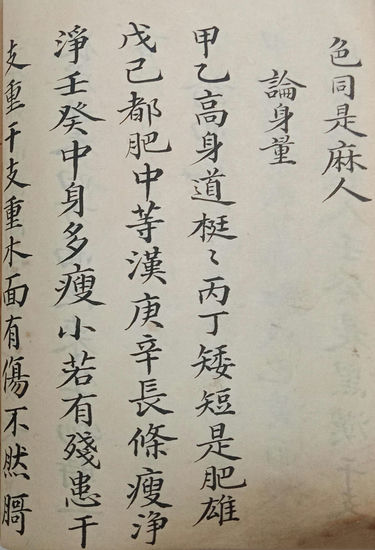 色同是麻人
論身量
甲乙高身道梃〻丙丁矮短是肥雄
戊己都肥中等漢庚辛長條瘦浄
淨壬癸中身多瘦小若有殘患干
支重干支重木面有傷不然